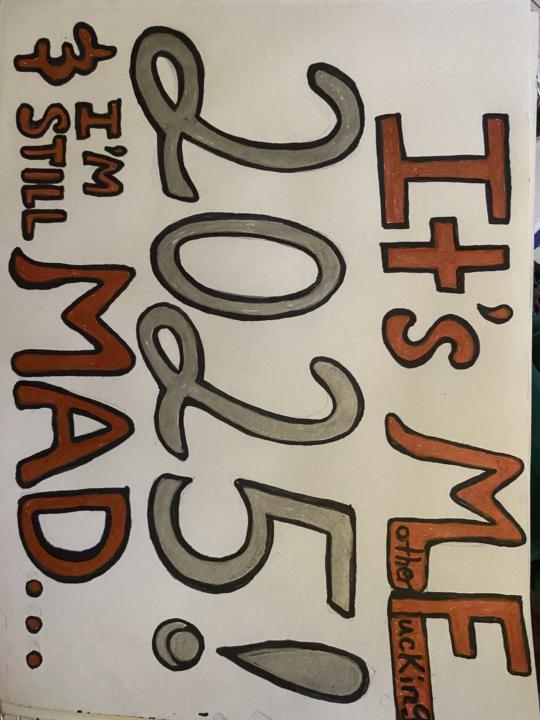 It's Mother Fucking
2025!
& I'M STILL MAD...